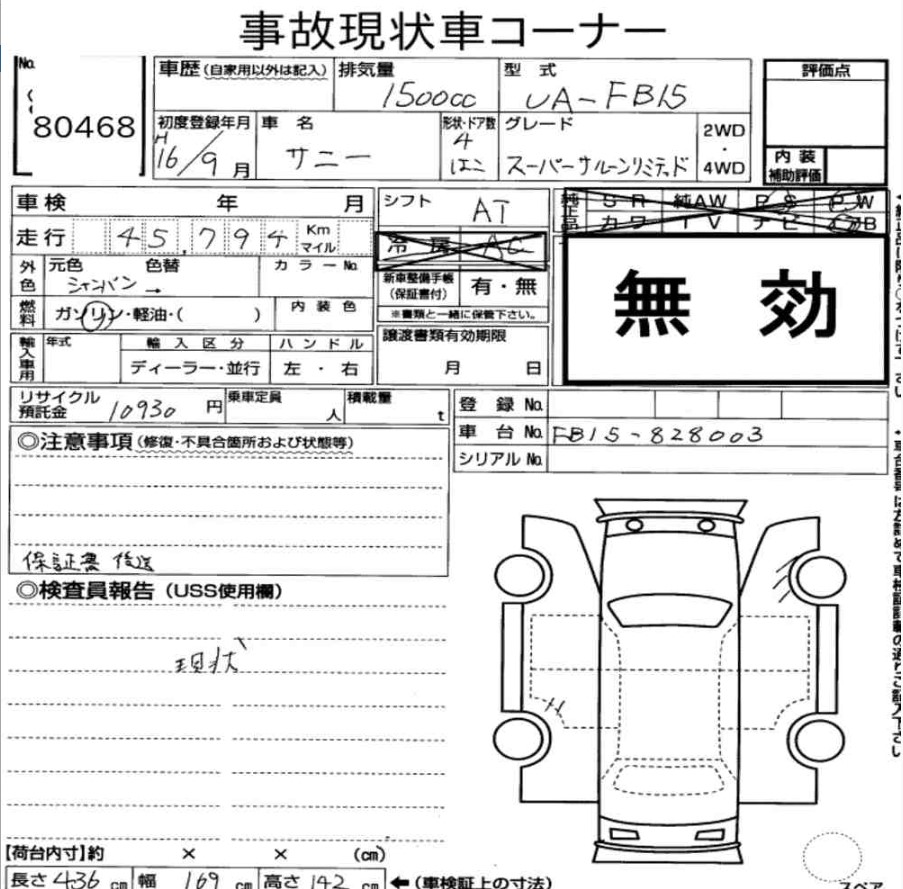 事故現状車コーナー
No.
80468
車歴（自家用以外は記入）
排気量
1500cc
型式
UA-FB15
評価点
初度登録年月
H 16/9月
車名
サニー
形状・ドア数
4
はこ
グレード
スーパーサルーンリミテッド
2WD
・
4WD
内装
補助評価
車検 年 月
シフト
AT
純正品
SR 純AW PS PW
カワ TV ナビ
走行 45,794 Km マイル
冷房 AC
外色
元色 色替
シャンパン→
カラーNo.
新車整備手帳
（保証書付）
有・無
無効
燃料
ガソリン・軽油・（ ）
内装色
※書類と一緒に保管下さい。
輸入車用
年式
輸入区分
ハンドル
ディーラー・並行
左・右
譲渡書類有効期限
月 日
リサイクル
預託金
10930円
乗車定員
人
積載量
t
登録No.
車台No.
FB15-828003
シリアルNo.
◎注意事項（修復・不具合箇所および状態等）
保証書 後送
◎検査員報告（USS使用欄）
現状
【荷台内寸】約 × × （cm）
長さ436cm 幅169cm 高さ142cm ←（車検証上の寸法）
スペア